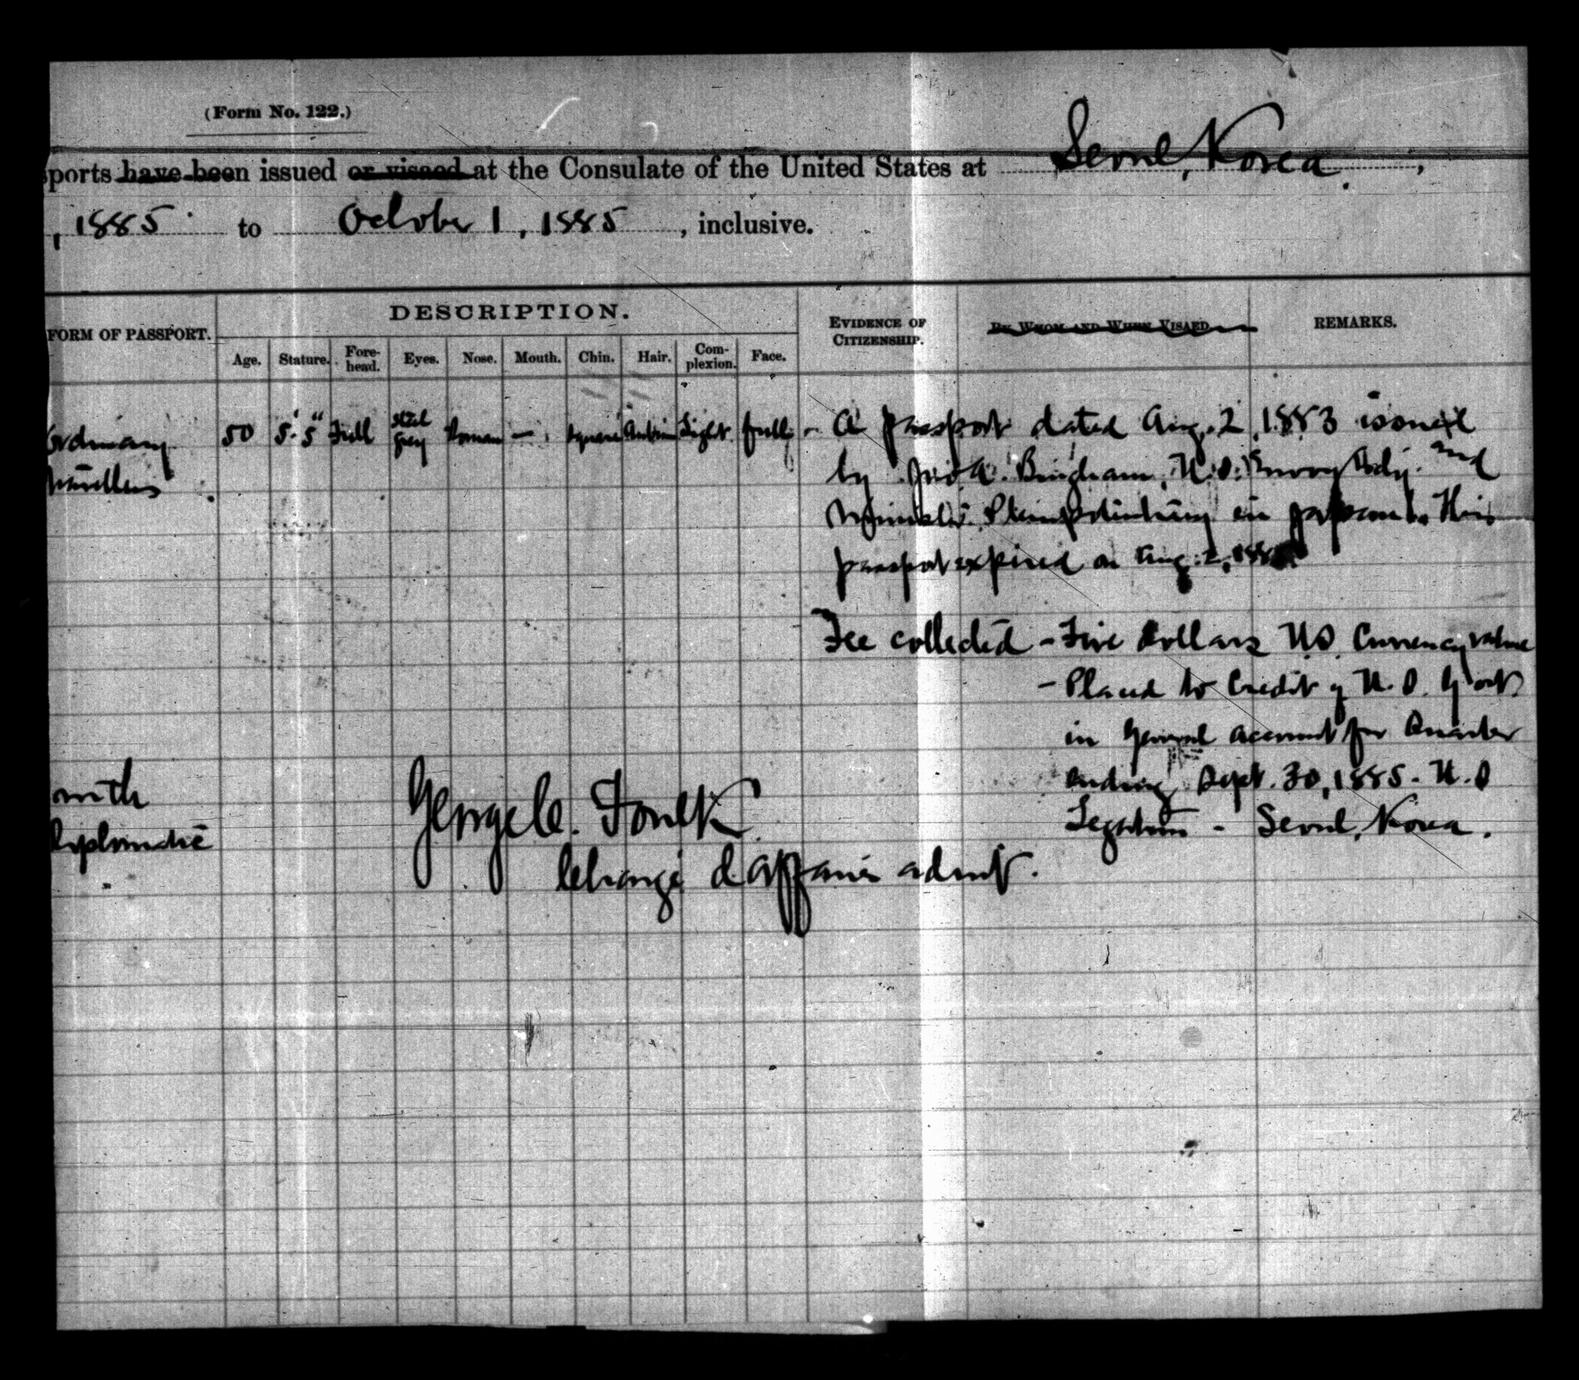 (Form No. 122.)
sports have been issued or visaed at the Consulate of the United States at Seoul, Korea.,
, 1885 to October 1, 1885, inclusive.
FORM OF PASSPORT.
DESCRIPTION.
EVIDENCE OF CITIZENSHIP.
BY WHOM AND WHEN VISAED.
REMARKS.
Age. Stature. Fore-head. Eyes. Nose. Mouth. Chin. Hair. Com-plexion. Face.
Ordinary 50 5'5" Full steel grey Roman — square Auburn Light full - A passport dated Aug. 2, 1883 issued
travellers by Jno A. Bingham, U.S. Envoy Extdy. and
Minister Plenipotentiary in Japan. This
passport expired on Aug. 2, 1885
Fee collected - Five dollars U.S. Currency value
- Placed to Credit of U.S. Gov't
in General account for Quarter
ending Sept. 30, 1885. U.S
Legation - Seoul, Korea.
George C. Foulk
Chargé d'affaires ad int.